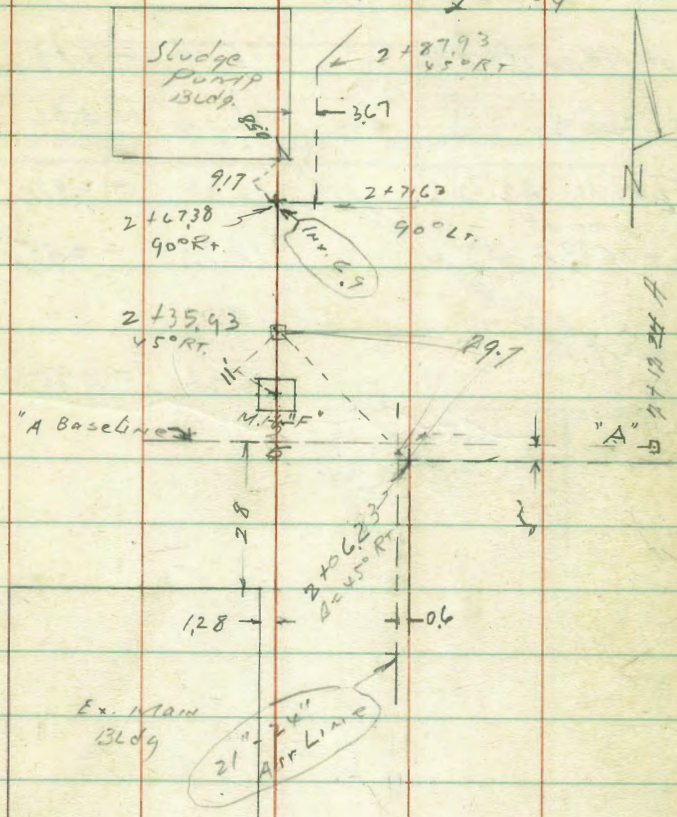 Sludge
Pump
Bldg.
2+87.93
45° Rt
3.67
0.58
9.17
2+67.38
90° Rt.
2+71.63
90° Lt.
Inv. 6.9
N
2+35.93
45° Rt.
29.7
11'
M.H. "F"
"A Baseline
"A"
28
2+06.23
Δ=45° Rt
1.28
0.6
Ex. Main
Bldg
21"-24"
Air Line